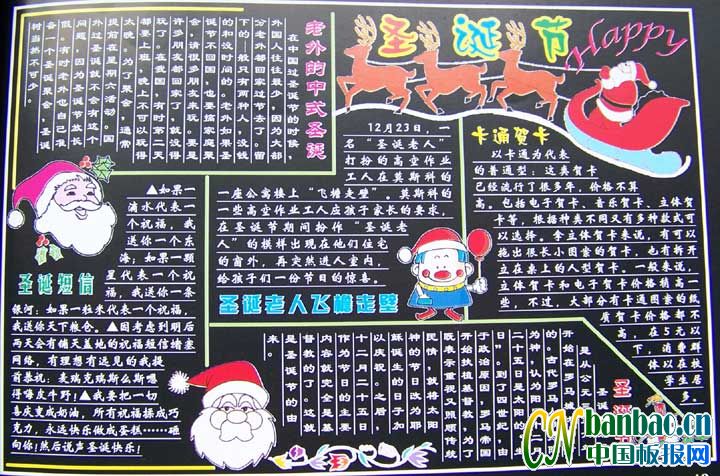 圣诞节
Happy
老外的中式圣诞
在中国过圣诞节的时候,
外国人往往很少,因为大部
分老外都回家过节去了。留
下的一般只有两种人,没钱
的和没时间的。老外如果圣
诞节不回国,也要搞家庭聚
会,请很多朋友来玩。要是
许多朋友都回家了,就没得
玩了。在我国,有时第二天
都要上班,晚上不可以玩得
太晚。为了聚会,通常
提前在星期六活动。国
外过圣诞就不会有这个
问题,因为圣诞节放长
假。有时老外也自己准
备一个圣诞聚会,圣诞
树当然不可少。
12月23日,一
名“圣诞老人”
打扮的高空作业
工人在莫斯科的
一座公寓楼上“飞檐走壁”。莫斯科的
一些高空作业工人应孩子家长的要求,
在圣诞节期间扮作“圣诞老
人”的模样出现在他们住宅
的窗外,再突然进入室内,
给孩子们一份节日的惊喜。
圣诞老人飞檐走壁
卡通贺卡
以卡通为代表
的普通型:这类贺卡
已经流行了很多年,价格不算
高。包括电子贺卡、音乐贺卡、立体贺
卡等,根据种类不同又有多种款式可
以选择。拿立体贺卡来说,有可以
拖出很长小图案的贺卡,也有拆开
立在桌上的人型贺卡。一般来说,
立体贺卡和电子贺卡价格稍高一
些,不过,大部分有卡通图案的纸
质贺卡价格都不
高,在5元以
下,消费群
体以在校
学生居多。
圣诞短信
▲如果一
滴水代表一
个祝福,我
送你一个东
海;如果一颗
星代表一个祝
福,我送你一条
银河;如果一粒米代表一个祝福,
我送你天下粮仓。▲因考虑到明后
两天会有铺天盖地的祝福短信堵塞
网络,有理想有远见的我提
前恭祝:麦瑞克瑞斯么斯嘿
得嘎皮牛野;▲我要把一切
喜庆变成奶油,所有祝福揉成巧
克力,永远快乐做成蛋糕……砸
向你!然后说声圣诞快乐!
圣诞
圣诞
是从公元
开始在罗马
的。古代罗马
为神,认为阳
二十五日是太阳的生
”。到了四世纪,由
于政治原因,罗马帝国
开始扶植基督教,为了
既表示重视又照顾传统
民情,就将太阳
神的节日改为耶
稣诞生的日子加
以庆祝。之后,
十二月二十五日
作为节日的主要
内容就完全是基
督教的了。这就
是圣诞节的由
来。
CN banbao.cn
中国板报网